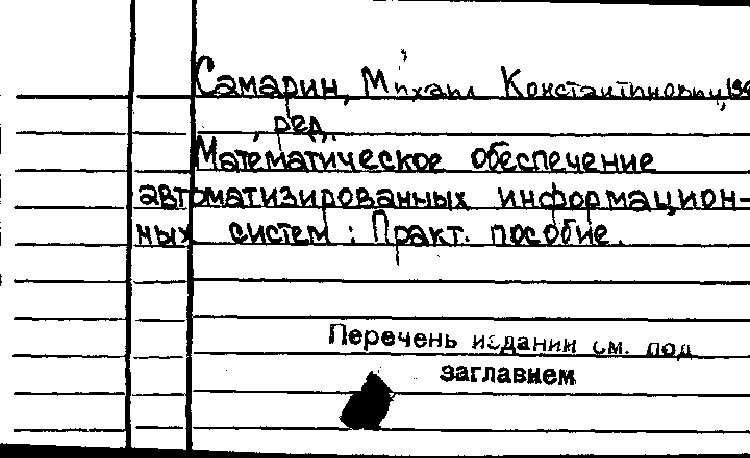 Самарин, Михаил Константинович, 19
, ред.
Математическое обеспечение
автоматизированных информацион-
ных систем : Практ. пособие.
Перечень издании см. под
заглавием